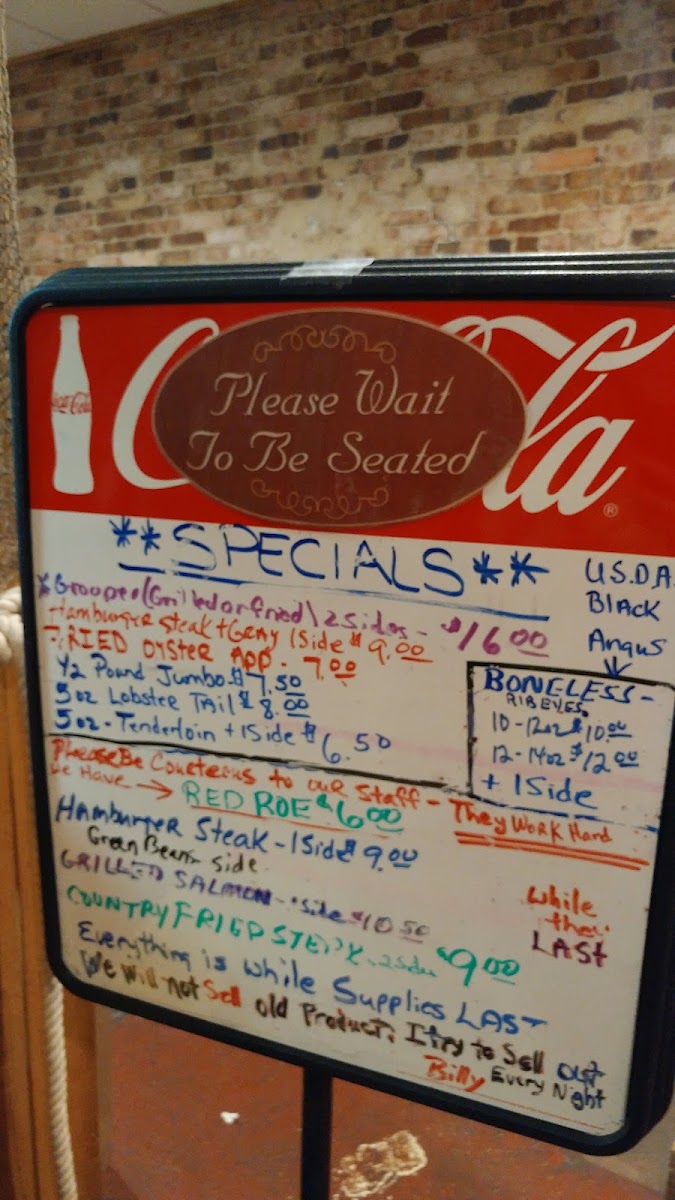 Coca-Cola
Please Wait
To Be Seated
la®
**SPECIALS**
U.S.D.A.
Black
Angus
*Grouper (Grilled or fried) 2 Sides - $16.00
Hamburger Steak + Gravy 1 Side $9.00
FRIED OYSTER APP. - 7.00
1/2 Pound Jumbo $7.50
5oz Lobster Tail $8.00
5oz - Tenderloin + 1 Side $6.50
BONELESS -
RIBEYES
10-12oz $10.00
12-14oz $12.00
+ 1 Side
Please Be Courteous to our Staff - They Work Hard
We Have → RED ROE $6.00
Hamburger Steak - 1 Side $9.00
Green Beans side
GRILLED SALMON - 1 side $10.50
While
they
LAST
COUNTRY FRIED STEAK - 2 sides $9.00
Everything is while Supplies LAST
We will not Sell old Product, I try to Sell out
Billy Every Night